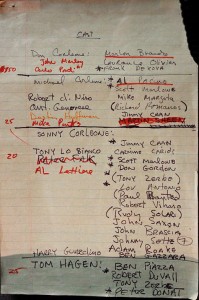 CAST
Don Corleone: Marlon Brando
John Marley Laurence Olivier
Carlo Ponti Frank De Kova
Michael Corleone: AL PACINO
Scott Marlowe
Robert di Niro Mike Margotta
Art Genovese (Richard Romanus)
Dustin Hoffman JIMMY CAAN
25
SONNY CORLEONE:
JIMMY CAAN
20 TONY LO BIANCO CARMINE CARIDI
PETER FALK SCOTT MARLOWE
AL Lettieri DON GORDON
(TONY ZERBE)
Lou Antonio
(Paul Banteo)
Robert Viharo
(Rudy Solari)
JOHN SAXON
JOHN BRASCIA
Johnny Sette ?
Adam Roarke
HARRY GUARDINO BEN GAZZARA
TOM HAGEN: BEN PIAZZA
25 ROBERT DUVALL
TONY ZERBE
PETER DONAT